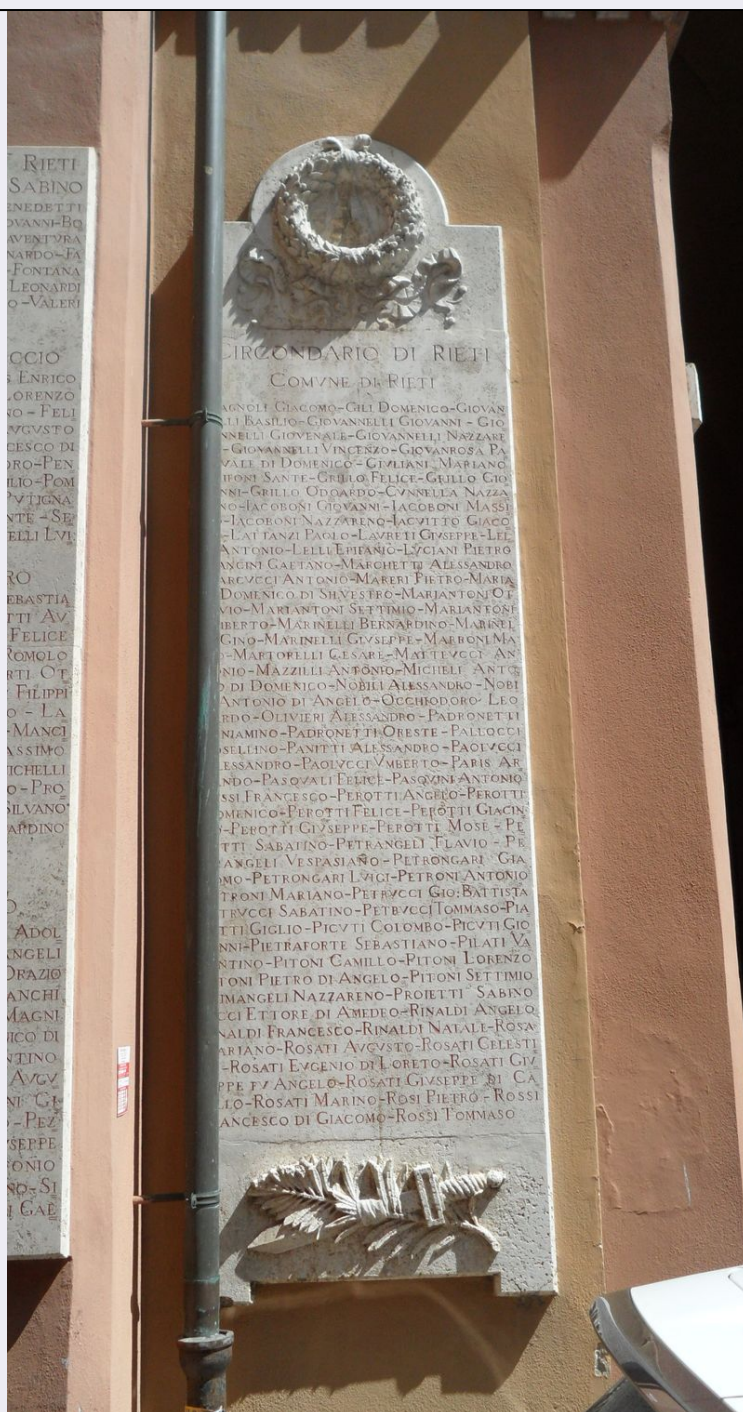 RIETI
SABINO
ENEDETTI
OVANNI-BO
AVENTVRA
NARDO-FA
-FONTANA
LEONARDI
O-VALERI
OCCIO
ENRICO
LORENZO
NO-FELI
AVGVSTO
CESCO DI
ORO-PEN
ILIO-POM
PVTIGNA
NTE-SE
ELLI LVI
RO
EBASTIA
TTI AV
FELICE
ROMOLO
RTI OT
FILIPPI
O-LA
-MANCI
ASSIMO
MICHELLI
O-PRO
SILVANO
ARDINO
O
ADOL
ANGELI
ORAZIO
ANCHI
MAGNI
NICO DI
NTINO
AVGV
NI GI
-PEZ
VSEPPE
FONIO
NO-SI
I GAE
CIRCONDARIO DI RIETI
COMVNE DI RIETI
AGNOLI GIACOMO-GILI DOMENICO-GIOVAN
LI BASILIO-GIOVANNELLI GIOVANNI-GIO
NNELLI GIOVENALE-GIOVANNELLI NAZZARE
-GIOVANNELLI VINCENZO-GIOVANROSA PA
VALE DI DOMENICO-GIVLIANI MARIANO
IFONI SANTE-GRILLO FELICE-GRILLO GIO
NNI-GRILLO ODOARDO-CVNNELLA NAZZA
NO-IACOBONI GIOVANNI-IACOBONI MASSI
-IACOBONI NAZZARENO-IACVITTO GIACO
-LATTANZI PAOLO-LAVRETI GIVSEPPE-LEL
ANTONIO-LELLI EPIFANIO-LVCIANI PIETRO
ANCINI GAETANO-MARCHETTI ALESSANDRO
ARCVCCI ANTONIO-MARERI PIETRO-MARIA
DOMENICO DI SILVESTRO-MARIANTONI OT
VIO-MARIANTONI SETTIMIO-MARIANTONI
IBERTO-MARINELLI BERNARDINO-MARINEL
GINO-MARINELLI GIVSEPPE-MARRONI MA
-MARTORELLI CESARE-MATTEVCCI AN
NIO-MAZZILLI ANTONIO-MICHELI ANTO
O DI DOMENICO-NOBILI ALESSANDRO-NOBI
ANTONIO DI ANGELO-OCCHIODORO LEO
RDO-OLIVIERI ALESSANDRO-PADRONETTI
NIAMINO-PADRONETTI ORESTE-PALLOCCI
OSELLINO-PANITTI ALESSANDRO-PAOLVCCI
ESSANDRO-PAOLVCCI VMBERTO-PARIS AR
NDO-PASQVALI FELICE-PASQVINI ANTONIO
SSI FRANCESCO-PEROTTI ANGELO-PEROTTI
OMENICO-PEROTTI FELICE-PEROTTI GIACIN
-PEROTTI GIVSEPPE-PEROTTI MOSÈ-PE
TTI SABATINO-PETRANGELI FLAVIO-PE
ANGELI VESPASIANO-PETRONGARI GIA
MO-PETRONGARI LVIGI-PETRONI ANTONIO
TRONI MARIANO-PETRVCCI GIO:BATTISTA
TRVCCI SABATINO-PETRVCCI TOMMASO-PIA
TTI GIGLIO-PICVTI COLOMBO-PICVTI GIO
NNI-PIETRAFORTE SEBASTIANO-PILATI VA
NTINO-PITONI CAMILLO-PITONI LORENZO
TONI PIETRO DI ANGELO-PITONI SETTIMIO
IMANGELI NAZZARENO-PROIETTI SABINO
CCI ETTORE DI AMEDEO-RINALDI ANGELO
NALDI FRANCESCO-RINALDI NATALE-ROSA
ARIANO-ROSATI AVGVSTO-ROSATI CELESTI
-ROSATI EVGENIO DI LORETO-ROSATI GIV
PPE FV ANGELO-ROSATI GIVSEPPE DI CA
LO-ROSATI MARINO-ROSI PIETRO-ROSSI
ANCESCO DI GIACOMO-ROSSI TOMMASO